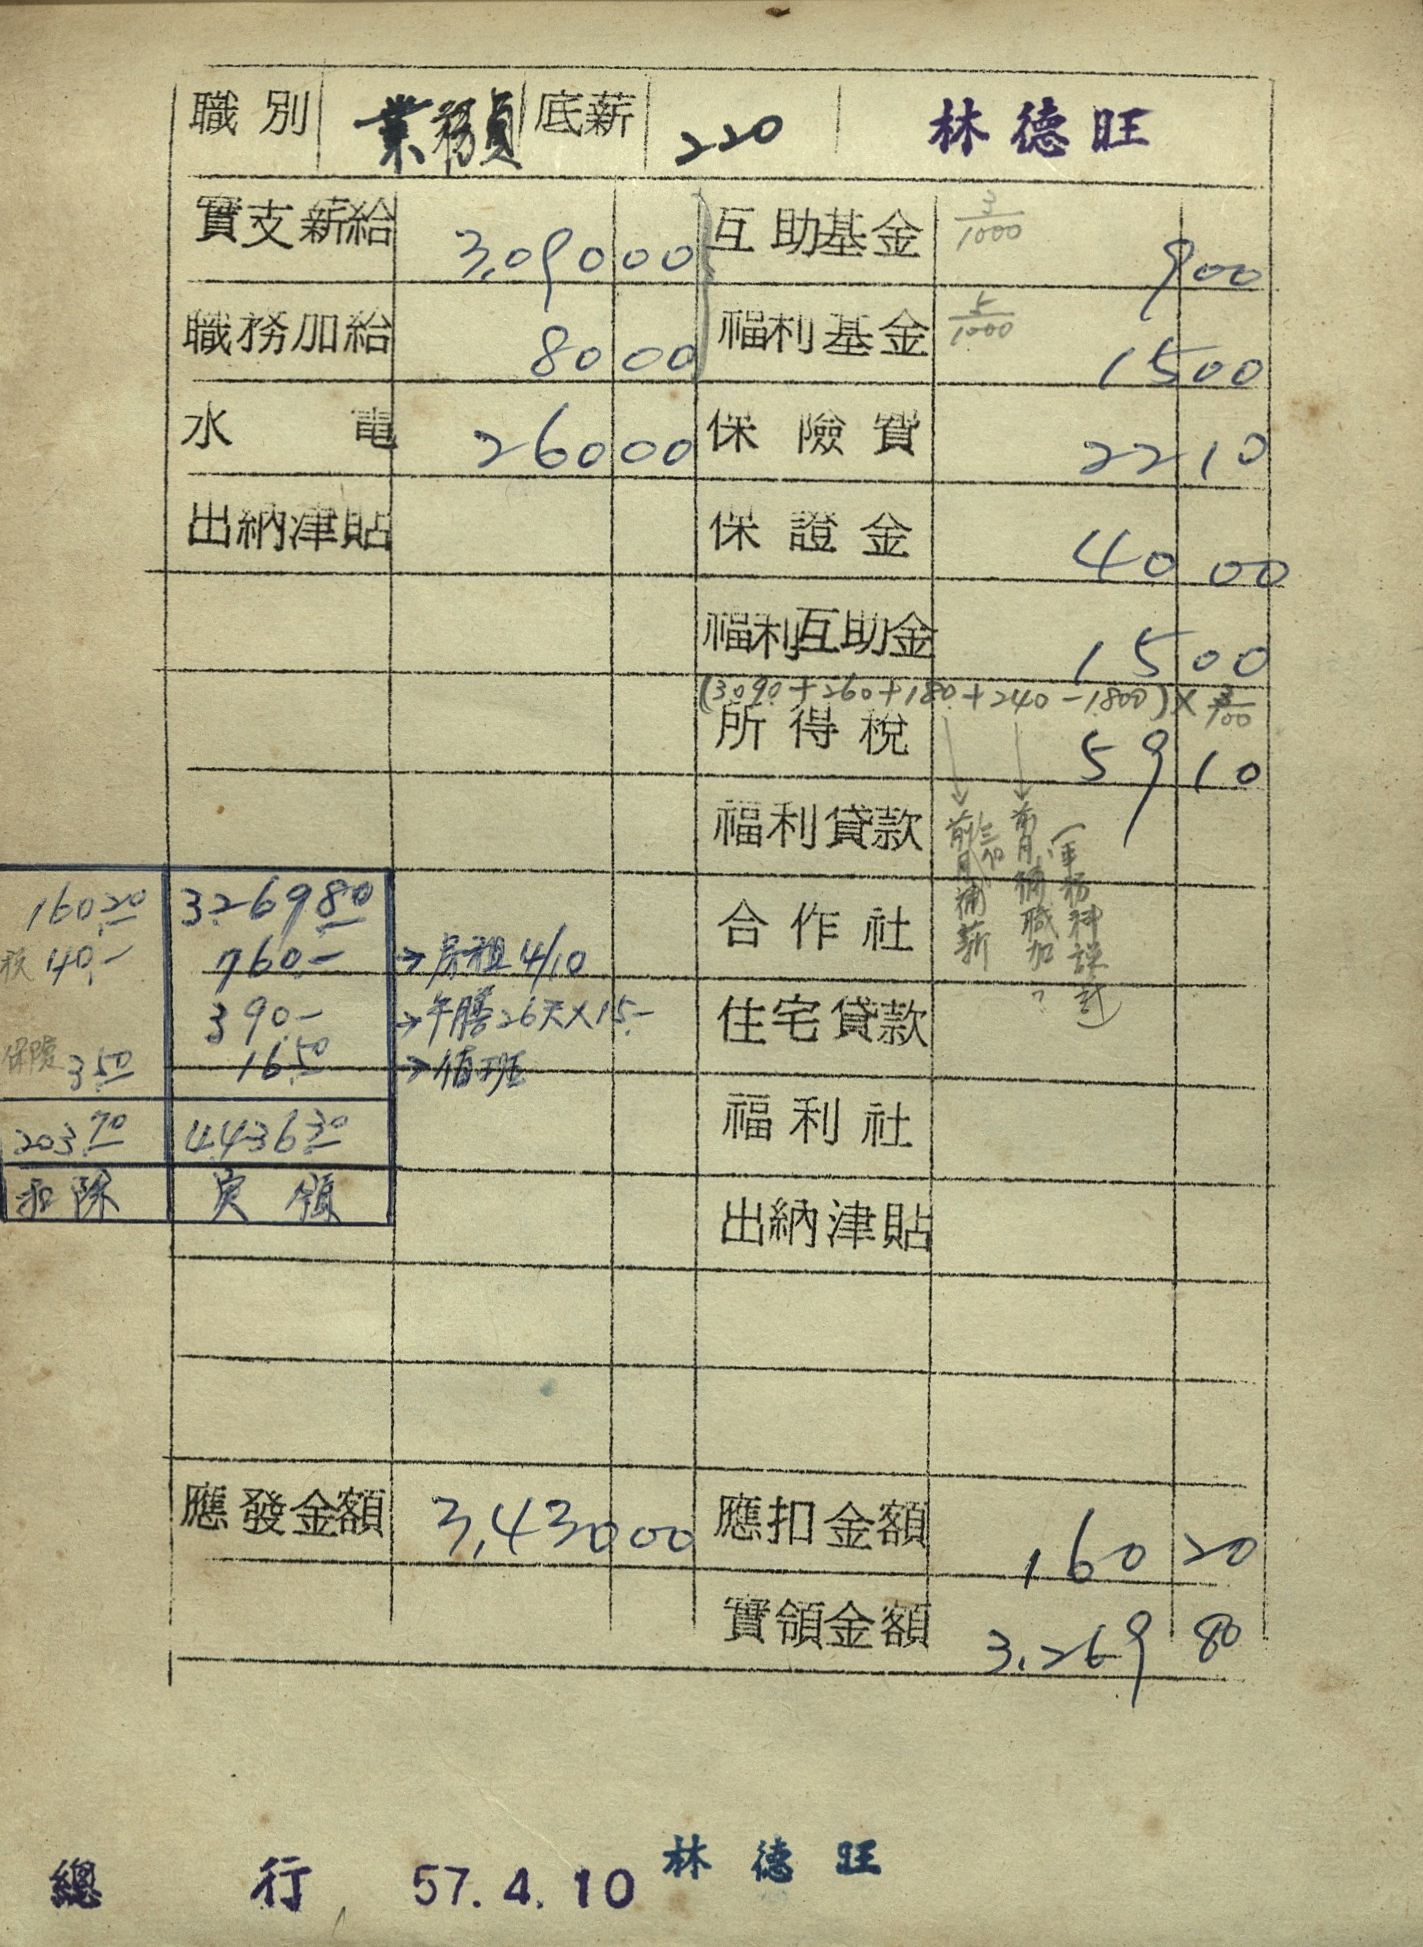 職別 業務員 底薪 220 林德旺
實支薪給 3,090 00 互助基金 3/1000 9 00
職務加給 80 00 福利基金 5/1000 15 00
水電 260 00 保險費 22 10
出納津貼 保證金 40 00
福利互助金 15 00
(3090+260+180+240-1800)×3/100
所得稅 59 10
福利貸款
前月補薪
前月補職加?
合作社
住宅貸款
福利社
出納津貼
160 20 3269 80
稅 40.- 760.- →房租4/10
390.- →午膳26天×15.-
保險 3 50 16 50 →值班
203 70 4,436 30
扣除 实領
應發金額 3,430 00 應扣金額 160 20
實領金額 3,269 80
總行 57.4.10 林德旺